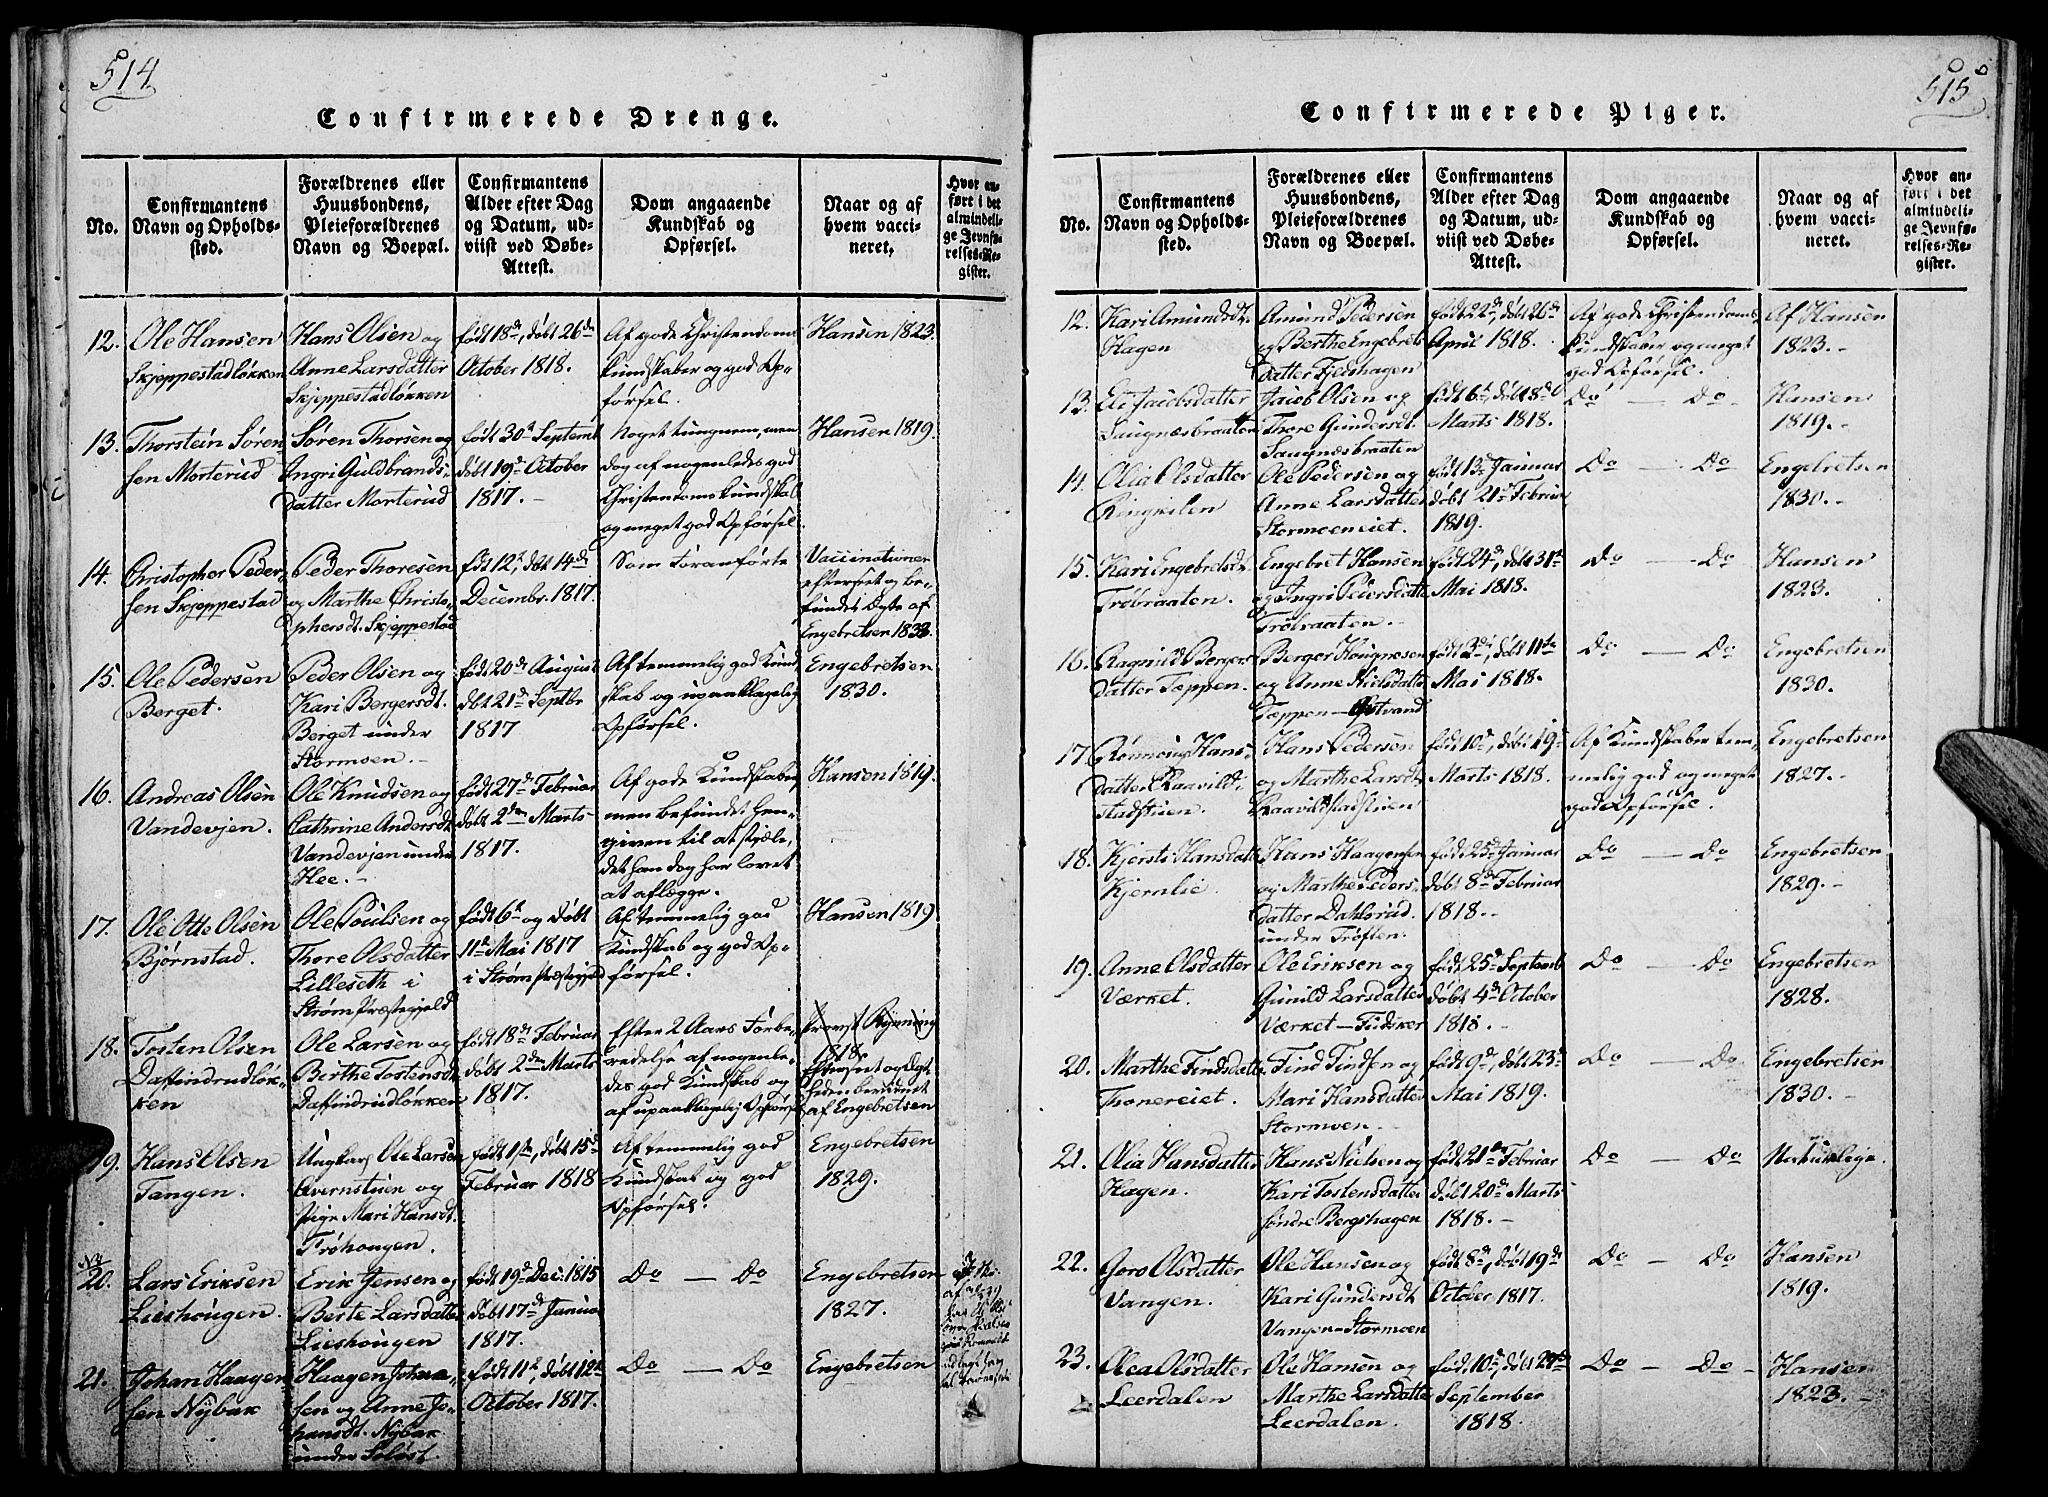 514
Confirmerede Drenge.
No.
Confirmantens
Navn og Opholds-
sted.
Forældrenes eller
Huusbondens,
Pleieforældrenes
Navn og Boepæl.
Confirmantens
Alder efter Dag
og Datum, ud-
viist ved Døbe-
Attest.
Dom angaaende
Kundskab og
Opførsel.
Naar og af
hvem vacci-
neret.
Hvor an-
ført i det
almindeli-
ge Jevnfø-
relses-Re-
gister.
12.
Ole Hansen
Skjeppestadløkken
Hans Olsen og
Anne Larsdatter
Skjeppestadløkken
født 18de, døbt 26de
October 1818.
Af gode Christendoms
kundskaber og god Op-
førsel.
Hansen 1823.
13.
Thorstein Søren-
sen Morterud
Søren Thorsen og
Ingri Guldbrands-
datter Morterud
født 30te Septemb
døbt 19de October
1817.-
Noget tungnem, men
dog af nogenledes god
Christendomskundskab
og meget god Opførsel
Hansen 1819.
14.
Christopher Peder-
sen Skjeppestad
Peder Thoresen
og Marthe Christo-
phersdt. Skjeppestad
født 12te, døbt 14de
Decembr. 1817.
Som foranførte
Vaccinationen
efterseet og be-
fundet Ægte af
Engebretsen 1833.
15.
Ole Pedersen
Berget.
Peder Olsen og
Kari Bergersdt.
Berget under
Stormoen.-
født 20de August
døbt 21de Septbr
1817
Af temmelig god Kund
skab og upaaklagelig
Opførsel.
Engebretsen
1830.
16.
Andreas Olsen
Vandevjen.
Ole Knudsen og
Cathrine Andersdt.
Vandevjen under
Hee.-
født 27de Februar
døbt 2den Marts
1817.
Af gode Kundskaber,
men befundet hen-
given til at stjæle,
det han dog har lovet
at aflægge.
Hansen 1819.
17.
Ole Otte Olsen
Bjørnstad.
Ole Poulsen og
Thore Olsdatter
Lilleseth i
Strøm Præstegjeld
født 6te og døbt
11te Mai 1817
i Strøm Præstegjeld
Af temmelig god
Kundskab og god Op-
førsel.
Hansen 1819
18.
Tosten Olsen
Daffindrudløk-
ken
Ole Larsen og
Berthe Tostensdt.
Daffindrudløkken
født 18de Februar
døbt 2den Marts
1817.
Efter 2 Aars Forbe-
redelse af nogenle-
des god Kundskab og
af upaaklagelig Opførsel
Provst Rynning
1818.
Efterseet og Ægt-
heden bevidnet
af Engebretsen
19.
Hans Olsen
Tangen.
Ungkarl Ole Larsen
Overnstuen og
Pige Mari Hansdt.
Trøhougen.
født 1ste, døbt 15de
Februar 1818
Af temmelig god
Kundskab og god
Opførsel.
Engebretsen
1829.
20.
Lars Eriksen
Lieshougen.
Erik Jensen og
Berte Larsdatter
Lieshougen
født 19de Dec. 1815
døbt 17de Januar
1817.
Do — Do
Engebretsen
1827.
21.
Johan Haagen-
sen Nybak
Haagen Johna-
sen og Anne Jo-
hansdt. Nybak
under Soløst
født 11te, døbt 12te
October 1817.
Do — Do
Engebretsen
515
Confirmerede Piger.
No.
Confirmantens
Navn og Opholds-
sted.
Forældrenes eller
Huusbondens,
Pleieforældrenes
Navn og Boepæl.
Confirmantens
Alder efter Dag
og Datum, ud-
viist ved Døbe-
Attest.
Dom angaaende
Kundskab og
Opførsel.
Naar og af
hvem vacci-
neret.
Hvor an-
ført i det
almindeli-
ge Jevnfø-
relses-Re-
gister.
12.
Kari Amundsdt.
Hagen
Amund Pedersen
og Berthe Engebrets
datter Fjeldshagen
født 22de, døbt 26de
April 1818.
Af gode Christendoms-
kundskaber og meget
god Opførsel.
Af Hansen
1823.-
13.
Eli Jacobsdatter
Saugnæsbraaten
Jacob Olsen og
Thore Gundersdt.
Saugnæsbraaten
født 6te, døbt 8de
Marts 1818.
Do — Do
Hansen
1819.-
14.
Olia Olsdatter
Ringkilen
Ole Pedersen og
Anne Larsdatter
Stormoeneiet.
født 13de Januar
døbt 21de Februar
1819.
Do — Do
Engebretsen
1830.-
15.
Kari Engebretsdt.
Trøbraaten.
Engebret Hansen
og Ingri Pedersdatter
Trøbraaten.-
født 24de, døbt 31te
Mai 1818.
Do — Do
Hansen
1823.-
16.
Ragnild Bergers
datter Tæppen.
Berger Haagnesen
og Anne Nielsdatter
Tæppen — Østvand
født 2den, døbt 11te
Mai 1818.
Do — Do
Engebretsen
1830.-
17.
Rønnoug Hans-
datter Raavild-
stadstuen.
Hans Pedersen
og Marthe Larsdt.
Raavildstadstuen
født 10de, døbt 19de
Marts 1818.
Af Kundskaber tem-
melig god og meget
god Opførsel.
Engebretsen
1827.-
18.
Kjersti Hansdatter
Kjernlie.
Hans Haagensen
og Marthe Peders-
datter Dahlsrud
under Trøften.
født 25de Januar
døbt 8de Februar
1818.-
Do — Do
Engebretsen
1829.-
19.
Anne Olsdatter
Værket.
Ole Eriksen og
Gunild Larsdatter
Værket — Fudsker
født 25de Septemb
døbt 4de October
1818.-
Do — Do
Engebretsen
1828.-
20.
Marthe Findsdatter
Thonereiet.
Find Findsen og
Mari Hansdatter
Stormoen.-
født 9de, døbt 23de
Mai 1819.
Do — Do
Engebretsen
1830.-
21.
Olia Hansdatter
Hagen.
Hans Nielsen og
Kari Tostensdatter
søndre Bergshagen
født 21de Februar
døbt 20de Marts
1818.-
Do — Do
22.
Goro Olsdatter
Vangen.
Ole Hansen og
Kari Gundersdt
Vangen-Stormoen
født 8de, døbt 19de
October 1817.
Do — Do
Hansen
1819.
23.
Olea Olsdatter
Leerdalen
Ole Hansen og
Marthe Larsdatter
Leerdalen.
født 10de, døbt 27de
September
1818.
Do — Do
Hansen
1823.-